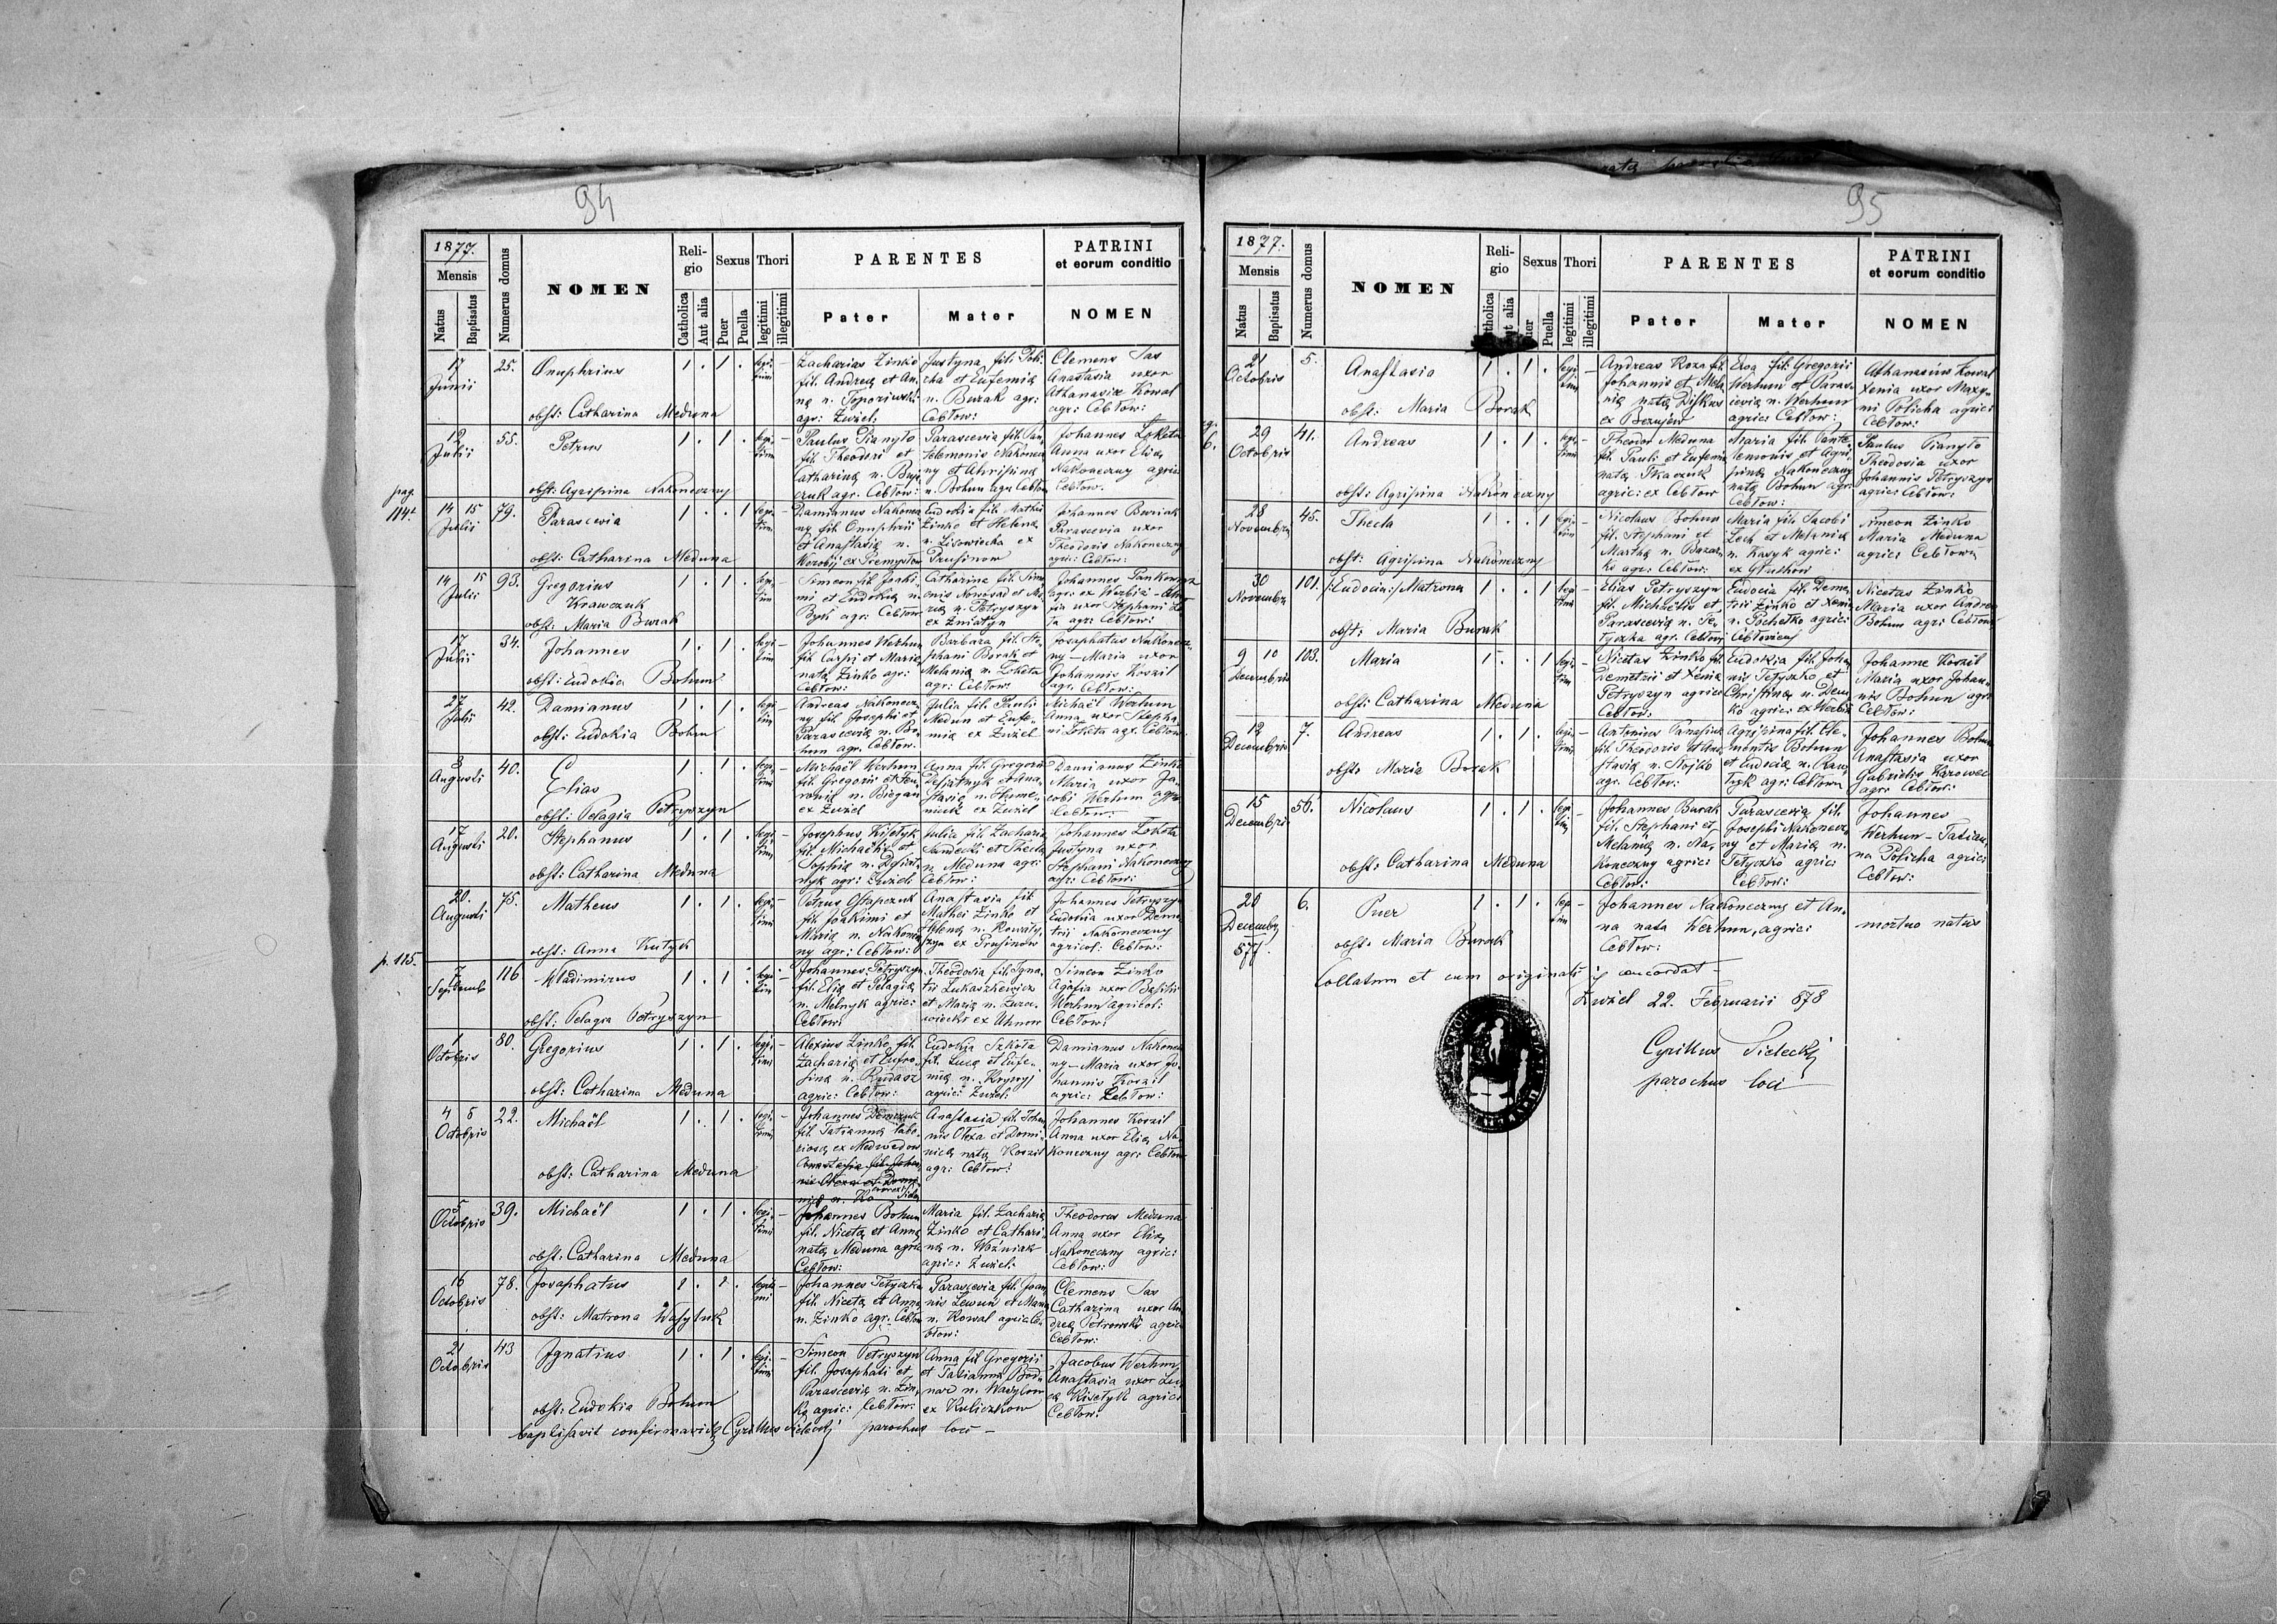 94
1877.
Mensis
Natus
Baptisatus
Numerus domus
NOMEN
Reli-
gio
Catholica
Aut alia
Sexus
Puer
Puella
Thori
legitimi
illegitimi
PARENTES
Pater
Mater
PATRINI
et eorum conditio
NOMEN
17
Junii
25.
Onuphrius
obst: Catharina Meduna
1 . 1 .
legi-
timi
Zacharias Zinko
fil. Andreę et An-
nę n.
agr: Żużel:
Justyna fil:
et Eufemię
n. Burak agr:
Cebłow:
Clemens Sas
Anastasia uxor
Athanasii Kowal
agr: Cebłow:
12
Julii
55.
Petrus
obst: Agripina Nakoneczny
1 . 1 .
legi-
timi
Paulus Pianyło
fil. Theodori et
Catharinę n.
agr. Cebłow:
Parascevia fil. Pan-
telemonis Nakonecz
ny et Ahripinę
n. Bohun agr. Cebłow
Johannes Loketa
Anna uxor Elię
Nakoneczny agric:
Cebłow:
pag.
114.
14 15
Julii
79.
Parascevia
obst: Catharina Meduna
1 . . 1
legi-
tim
Damianus Nakonecz
ny fil. Onuphrii
et Anastasię n.
Worobij ex Premysłow
Eudokia fil. Mathei
Zinko et Helenę
n. Lisowiecka ex
Prusinow
Johannes Buriak
Parascevia uxor
Theodoris Nakoneczny
agric: Cebłow:
14 15
Julii
93.
Gregorius
Krawczuk
obst: Maria Burak
1 . 1 .
legi-
tim
Simeon fil. Joaki-
mi et Eudokię n.
Byś agr. Cebłow
Catharina fil. Sime-
onis Nowosad et Ma-
rię n. Petryszyn
ex Żniatyn
Johannes Pankowycz
agr: ex Werbiż -
fia uxor Stephani
agr: Cebłow:
17
Julii
34.
Johannes
obst: Eudokia Bohun
1 . 1 .
legi-
tim
Johannes Werhun
fil. Carpi et Marię
natę Zinko agr:
Cebłow:
Barbara fil. Ste-
phani Borak et
Melanię n. Loketa
agr: Cebłow:
Josaphatus Nakonecz-
ny - Maria uxor
Johannis Koszil
agr. Cebłow:
27
Julii
42.
Damianus
obst: Eudokia Bohun
1 . 1 .
legi-
tim
Andreas Nakonecz-
ny fil. Josephi et
Parascevię n. Bo-
hun agr. Cebłow.
Julia fil. Pauli
Medun et Eufe-
mię ex Żużel
Michaël Werhun
Anna uxor Stepha-
ni Loketa agr. Cebłow.
3
Augusti
40.
Elias
obst: Pelagia Petryszyn
1 . 1 .
legi-
timi
Michaël Werhun
fil. Gregorii et
n.
ex Żużel
Anna fil. Gregorii
Desiatnyk et Ana-
stasię n.
ex Żużel
Damianus Zinko
Maria uxor Ja-
cobi Werhun agr.
Cebłow:
17
Augusti
20.
Stephanus
obst: Catharina Meduna
1 . 1 .
legi-
timi
Josephus Kisełyk
fil. Michaëlis et
Sophię n. Desiat-
nyk agr: Żużel:
Julia fil. Zacharię
et Theclę
n. Meduna agr:
Cebłow:
Johannes Loketa
Justyna uxor
Stephani Nakoneczny
agr: Cebłow:
20.
Augusti
75.
Matheus
obst: Anna Kutyk
1 . 1 .
legi-
timi
Petrus Ostapczuk
fil. Joakimi et
Marię n. Nakonecz-
ny agr: Cebłow:
Anastasia fil.
Mathei Zinko et
Helenę n.
ex Prusinow
Johannes Petryszyn
Eudokia uxor Deme-
trii Nakoneczny
agricol: Cebłow:
p. 115.
7
Septemb
116
Wladimirus
obst: Pelagia Petryszyn
1 . 1 .
legi-
tim
Johannes Petryszyn
fil. Elię et Pelagię
n. Melnyk agric:
Cebłow:
Theodosia fil. Igna-
tii Lukaszkewicz
et Marię n.
ex Uhnow
Simeon Zinko
Agafia uxor Basilii
Werhun agricol:
Cebłow:
1
Octobris
80.
Gregorius
obst: Catharina Meduna
1 . 1 .
legi-
timi
Alexius Zinko fil.
Zacharię et Eufro-
sinę n. Rudasz
agric: Cebłow:
Eudokia Szkoła
fil. Lucę et Eufe-
mię n. Krywyj
agric: Żużel:
Damianus Nakonecz
ny - Maria uxor Jo-
hannis Koszil
agric: Cebłow:
4 8
Octobris
22.
Michaël
obst: Catharina Meduna
1 . 1 .
legi-
timi
Johannes Demczuk
fil. Tatiannę labo-
riosę ex Medwedow
Anastasia fil. Johan-
nis Olexa et Domi-
nicę n. Ko
Anastasia fil. Johan-
nis Olexa et Domi-
nicę natę Koszil
agr: Cebłow:
Johannes Koszil
Anna uxor Elię Na-
koneczny agr: Cebłow
5
Octobris
39.
Michaël
obst: Catharina Meduna
1 . 1 .
legi-
timi
Johannes Bohun
fil. Nicetę et Annę
natę Meduna agric
Cebłow:
Maria fil. Zacharię
Zinko et Cathari-
nę n. Woźniak
agric: Żużel:
Theodorus Meduna
Anna uxor Elię
Nakoneczny agric:
Cebłow:
16
Octobris
78.
Josaphatus
obst: Matrona Wasyluk
1 . 1 .
legiti-
mi
Johannes Tetyczka
fil. Nicetę et Annę
n. Zinko agr. Cebłow
Parascevia fil. Joan-
nis Lewun et Marię
n. Kowal agric Ce-
błow:
Clemens Sas
Catharina uxor An-
dreę Petrowski agric
Cebłow:
21
Octobris
43
Ignatius
obst: Eudokia Bohun
1 . 1 .
legi-
timi
Simeon Petryszyn
fil. Josaphati et
Parascevię n. Zin-
ko agric: Cebłow:
Anna fil Gregorii
et Tatiannę Bod-
nar n. Wasylow
ex Kuliczkow
Jacobus Werhun
Anastasia uxor Lu-
cę Kisełyk agric:
Cebłow:
baptisavit confirmavitq Cyrillus Sielecki parochus loci -
95
1877.
Mensis
Natus
Baptisatus
Numerus domus
NOMEN
Reli-
gio
Catholica
Aut alia
Sexus
Puer
Puella
Thori
legitimi
illegitimi
PARENTES
Pater
Mater
PATRINI
et eorum conditio
NOMEN
21
Octobris
5.
Anastasia
obst: Maria Borak
1 . 1 .
legi-
timi
Andreas Koza fil.
Johannis et Mela-
nię natę Diskus
ex Bezejów
Eva fil. Gregorii
Werhun et Paras-
cevię n. Werhun
agric: Cebłow:
Athanasius Kowal
Xenia uxor Maxy-
mi Policha agric:
Cebłow:
29
Octobris
41.
Andreas
obst: Agripina Nakoneczny
1 . 1 .
legi-
timi
Theodor Meduna
fil. Pauli et Eufemię
natę Tkaczuk
agric: ex Cebłow
Maria fil. Pante-
lemonis et Agri-
pinę Nakoneczny
natę Bohun agr:
Cebłow:
Paulus Pianyło
Theodosia uxor
Johannis Petryszyn
agric: Cebłow:
28
Novembris
45.
Thecla
obst: Agripina Nakoneczny
1 . . 1
legi-
tim
Nicolaus Bohun
fil. Stephani et
Marthę n. Bazar-
ko agr: Cebłow:
Maria fil. Jacobi
Zech et Melanię
n. Kasyk agric:
ex Głuchow
Simeon Zinko
Maria Meduna
agric: Cebłow:
30
Novembr
101.
/:Eudocia:/ Matrona
obst: Maria Burak
1 . . 1
legi-
tim
Elias Petryszyn
fil. Michaëlis et
Parascevię n. Te-
tyczka agr. Cebłow:
Eudocia fil. Deme-
trii Zinko et Xenię
n. Pochetko agric:
Cebłoviens
Nicetas Zinko
Maria uxor Andreę
Bohun agr: Cebłow
9 10
Decembris
103.
Maria
obst: Catharina Meduna
1 . . 1
legi-
tim
Nicetas Zinko fil.
Demetrii et Xenię
Petryszyn agric:
Cebłow:
Eudokia fil. Johan-
nis Tetyczko et
Christinę n. Dem-
ko agric: ex Werbiż
Johanne Koszil
Maria uxor Johan-
nis Bohun agr:
Cebłow:
12
Decembris
7.
Andreas
obst: Maria Borak
1 . 1 .
legi-
timi
Antonius Panasiuk
fil. Theodoris et Ana-
stasię n. Stojko
agr. Cebłow:
Agripina fil. Cle-
mentis Bohun
et Eudocię n.
agr: Cebłow:
Johannes Bohun
Anastasia uxor
Gabrielis Karowec
agr: Cebłow:
15
Decembris
56.
Nicolaus
obst: Catharina Meduna
1 . 1 .
legi-
tim
Johannes Burak
fil. Stephani et
Melanię n. Na-
koneczny agric:
Cebłow:
Parascevia fil.
Josephi Nakonecz-
ny et Marię n.
Tetyczko agric:
Cebłow:
Johannes
Werhun - Tatian-
na Policha agric:
Cebłow:
20
Decembr
877.
6.
Puer
obst: Maria Burak
1 . 1 .
legi-
tim
Johannes Nakoneczny et An-
na nata Werhun, agric:
Cebłow:
mortuo natus
Collatum et cum originali concordat -
Żużel 22. Februarii 878
Cyrillus Sielecki
parochus loci